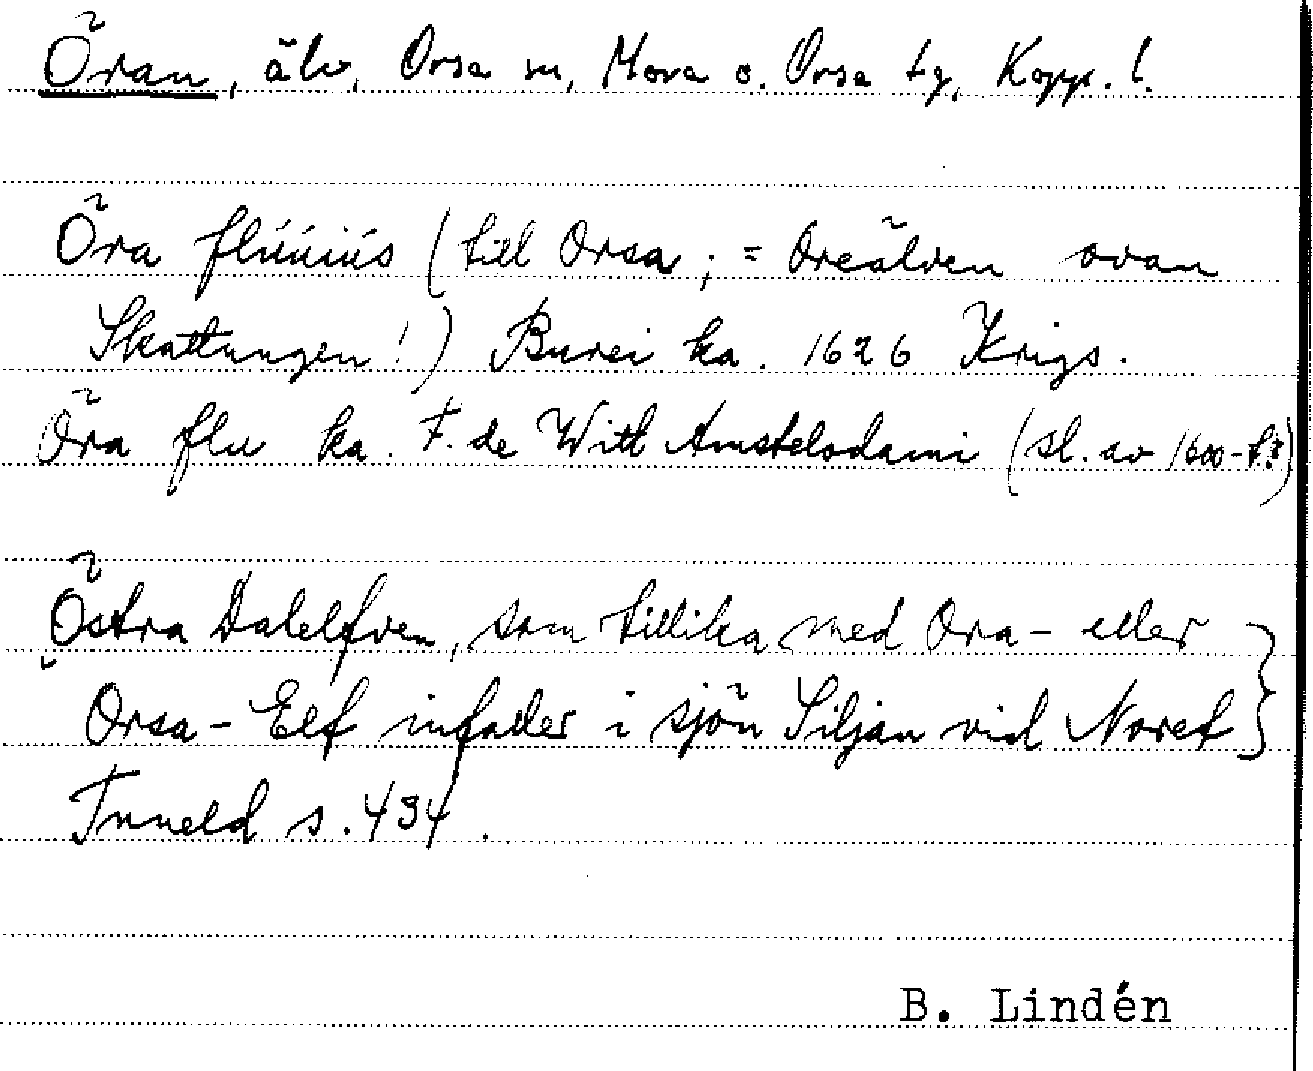 Öran, älv, Orsa sn, Mora o. Orsa tg, Kopp. l.
Öra flúúiús (till Orsa ; = Oreälven ovan
Skattungen!) Burei ka. 1626 Krigs.
Öra flu ka. F. de Witt Amstelodami (sl. av 1600-t.?)
"Östra Dalelfven, som tillika med Ora- eller
Orsa-Elf infaller i sjön Siljan vid Noret
Tuneld s. 434.
B. Lindén